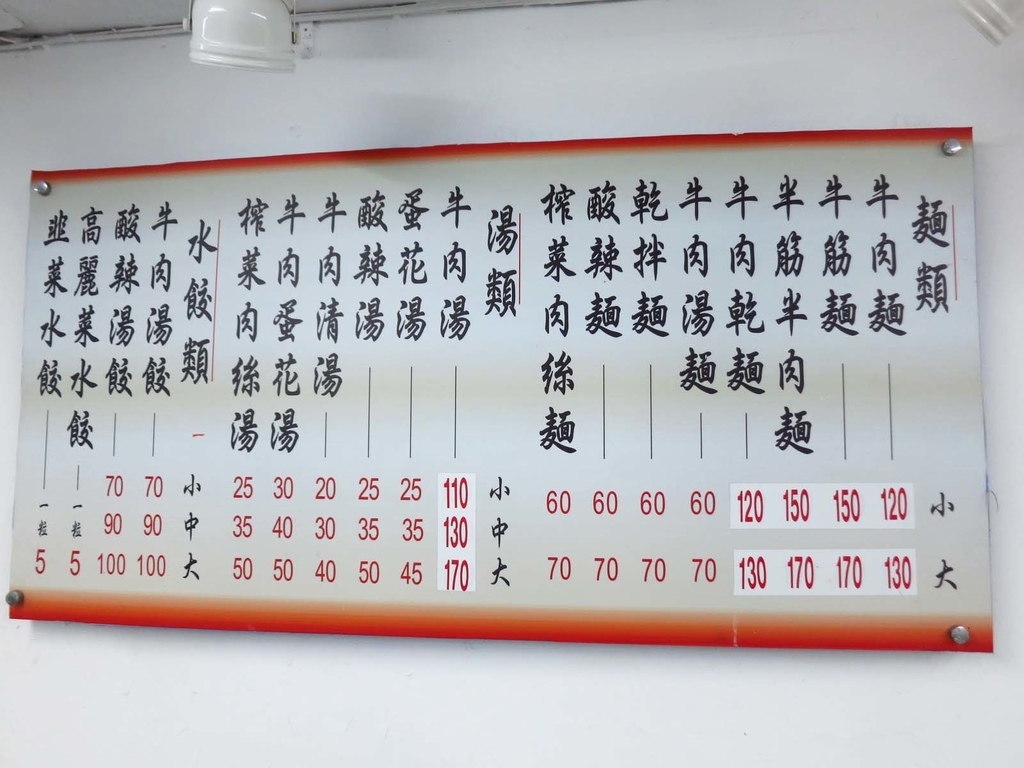 麵類 小 大
牛肉麵 120 130
牛筋麵 150 170
半筋半肉麵 150 170
牛肉乾麵 120 130
牛肉湯麵 60 70
乾拌麵 60 70
酸辣麵 60 70
榨菜肉絲麵 60 70
湯類 小 中 大
牛肉湯 110 130 170
蛋花湯 25 35 45
酸辣湯 25 35 50
牛肉清湯 20 30 40
牛肉蛋花湯 30 40 50
榨菜肉絲湯 25 35 50
水餃類 小 中 大
牛肉湯餃 70 90 100
酸辣湯餃 70 90 100
高麗菜水餃 一粒 5
韭菜水餃 一粒 5